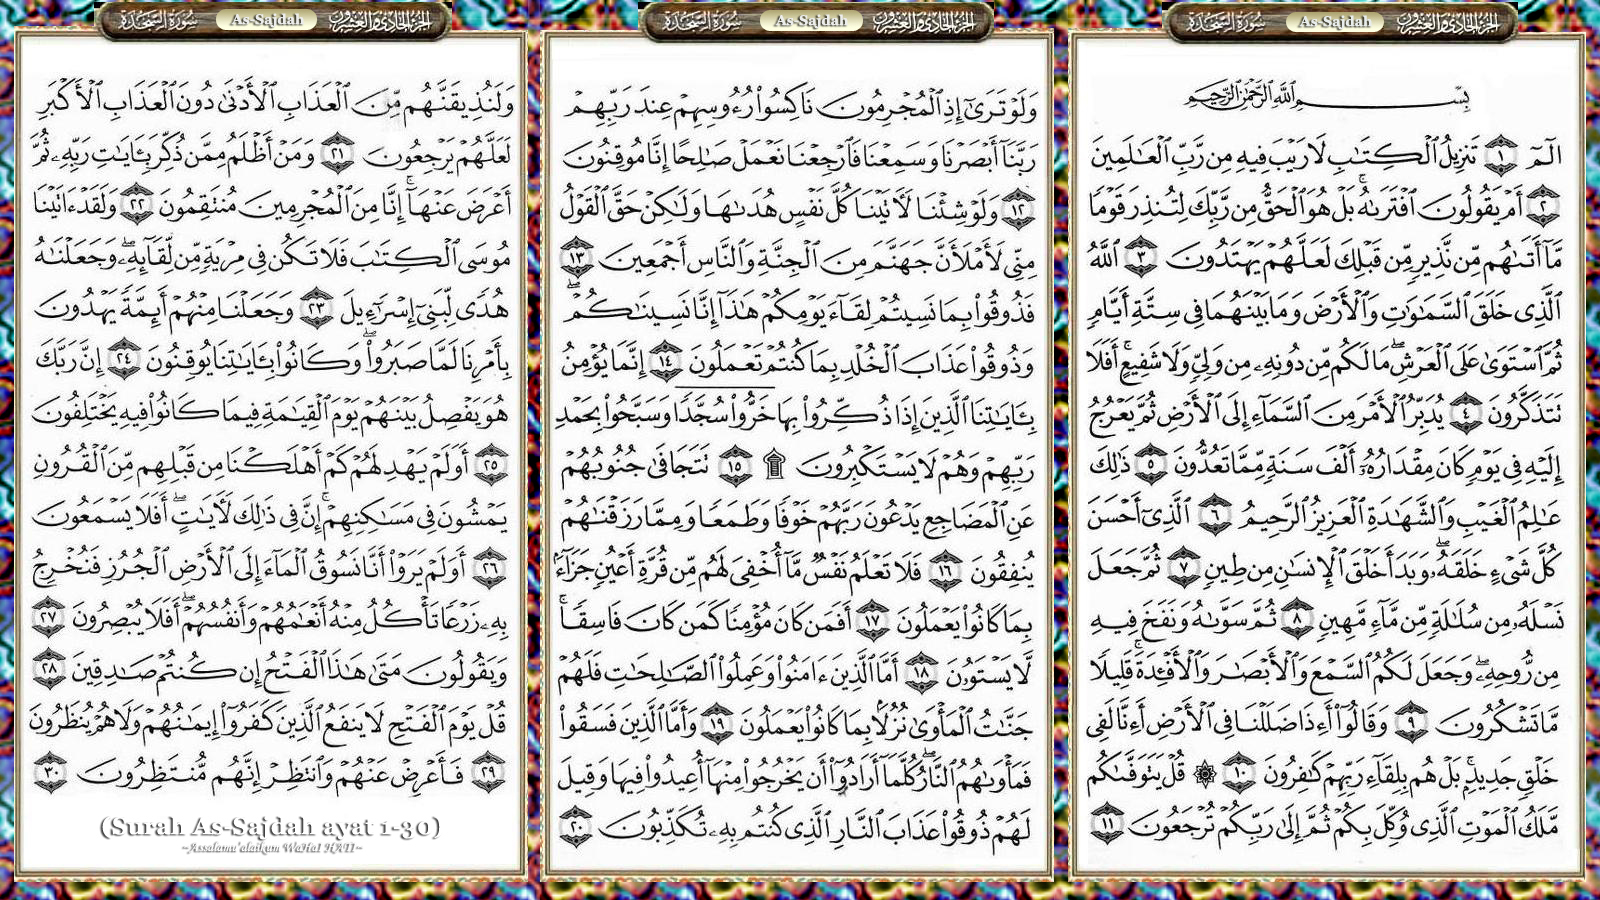 الجزء الحادي والعشرون As-Sajdah سورة السجدة
بِسْمِ اللَّهِ الرَّحْمَٰنِ الرَّحِيمِ
الٓمٓ ١ تَنزِيلُ الْكِتَٰبِ لَا رَيْبَ فِيهِ مِن رَّبِّ الْعَٰلَمِينَ
٢ أَمْ يَقُولُونَ افْتَرَىٰهُ ۚ بَلْ هُوَ الْحَقُّ مِن رَّبِّكَ لِتُنذِرَ قَوْمًا
مَّآ أَتَىٰهُم مِّن نَّذِيرٍ مِّن قَبْلِكَ لَعَلَّهُمْ يَهْتَدُونَ ٣ اللَّهُ
الَّذِى خَلَقَ السَّمَٰوَٰتِ وَالْأَرْضَ وَمَا بَيْنَهُمَا فِى سِتَّةِ أَيَّامٍ
ثُمَّ اسْتَوَىٰ عَلَى الْعَرْشِ ۖ مَا لَكُم مِّن دُونِهِۦ مِن وَلِىٍّ وَلَا شَفِيعٍ ۚ أَفَلَا
تَتَذَكَّرُونَ ٤ يُدَبِّرُ الْأَمْرَ مِنَ السَّمَآءِ إِلَى الْأَرْضِ ثُمَّ يَعْرُجُ
إِلَيْهِ فِى يَوْمٍ كَانَ مِقْدَارُهُۥٓ أَلْفَ سَنَةٍ مِّمَّا تَعُدُّونَ ٥ ذَٰلِكَ
عَٰلِمُ الْغَيْبِ وَالشَّهَٰدَةِ الْعَزِيزُ الرَّحِيمُ ٦ الَّذِىٓ أَحْسَنَ
كُلَّ شَىْءٍ خَلَقَهُۥ ۖ وَبَدَأَ خَلْقَ الْإِنسَٰنِ مِن طِينٍ ٧ ثُمَّ جَعَلَ
نَسْلَهُۥ مِن سُلَٰلَةٍ مِّن مَّآءٍ مَّهِينٍ ٨ ثُمَّ سَوَّىٰهُ وَنَفَخَ فِيهِ
مِن رُّوحِهِۦ ۖ وَجَعَلَ لَكُمُ السَّمْعَ وَالْأَبْصَٰرَ وَالْأَفْـِٔدَةَ ۚ قَلِيلًا
مَّا تَشْكُرُونَ ٩ وَقَالُوٓا۟ أَءِذَا ضَلَلْنَا فِى الْأَرْضِ أَءِنَّا لَفِى
خَلْقٍ جَدِيدٍۭ ۚ بَلْ هُم بِلِقَآءِ رَبِّهِمْ كَٰفِرُونَ ١٠ ۞ قُلْ يَتَوَفَّىٰكُم
مَّلَكُ الْمَوْتِ الَّذِى وُكِّلَ بِكُمْ ثُمَّ إِلَىٰ رَبِّكُمْ تُرْجَعُونَ ١١
الجزء الحادي والعشرون As-Sajdah سورة السجدة
وَلَوْ تَرَىٰٓ إِذِ الْمُجْرِمُونَ نَاكِسُوا۟ رُءُوسِهِمْ عِندَ رَبِّهِمْ
رَبَّنَآ أَبْصَرْنَا وَسَمِعْنَا فَارْجِعْنَا نَعْمَلْ صَٰلِحًا إِنَّا مُوقِنُونَ
١٢ وَلَوْ شِئْنَا لَـَٔاتَيْنَا كُلَّ نَفْسٍ هُدَىٰهَا وَلَٰكِنْ حَقَّ الْقَوْلُ
مِنِّى لَأَمْلَأَنَّ جَهَنَّمَ مِنَ الْجِنَّةِ وَالنَّاسِ أَجْمَعِينَ ١٣
فَذُوقُوا۟ بِمَا نَسِيتُمْ لِقَآءَ يَوْمِكُمْ هَٰذَآ إِنَّا نَسِينَٰكُمْ ۖ
وَذُوقُوا۟ عَذَابَ الْخُلْدِ بِمَا كُنتُمْ تَعْمَلُونَ ١٤ إِنَّمَا يُؤْمِنُ
بِـَٔايَٰتِنَا الَّذِينَ إِذَا ذُكِّرُوا۟ بِهَا خَرُّوا۟ سُجَّدًا وَسَبَّحُوا۟ بِحَمْدِ
رَبِّهِمْ وَهُمْ لَا يَسْتَكْبِرُونَ ۩ ١٥ تَتَجَافَىٰ جُنُوبُهُمْ
عَنِ الْمَضَاجِعِ يَدْعُونَ رَبَّهُمْ خَوْفًا وَطَمَعًا وَمِمَّا رَزَقْنَٰهُمْ
يُنفِقُونَ ١٦ فَلَا تَعْلَمُ نَفْسٌ مَّآ أُخْفِىَ لَهُم مِّن قُرَّةِ أَعْيُنٍ جَزَآءًۢ
بِمَا كَانُوا۟ يَعْمَلُونَ ١٧ أَفَمَن كَانَ مُؤْمِنًا كَمَن كَانَ فَاسِقًا ۚ
لَّا يَسْتَوُۥنَ ١٨ أَمَّا الَّذِينَ ءَامَنُوا۟ وَعَمِلُوا۟ الصَّٰلِحَٰتِ فَلَهُمْ
جَنَّٰتُ الْمَأْوَىٰ نُزُلًۢا بِمَا كَانُوا۟ يَعْمَلُونَ ١٩ وَأَمَّا الَّذِينَ فَسَقُوا۟
فَمَأْوَىٰهُمُ النَّارُ ۖ كُلَّمَآ أَرَادُوٓا۟ أَن يَخْرُجُوا۟ مِنْهَآ أُعِيدُوا۟ فِيهَا وَقِيلَ
لَهُمْ ذُوقُوا۟ عَذَابَ النَّارِ الَّذِى كُنتُم بِهِۦ تُكَذِّبُونَ ٢٠
الجزء الحادي والعشرون As-Sajdah سورة السجدة
وَلَنُذِيقَنَّهُم مِّنَ الْعَذَابِ الْأَدْنَىٰ دُونَ الْعَذَابِ الْأَكْبَرِ
لَعَلَّهُمْ يَرْجِعُونَ ٢١ وَمَنْ أَظْلَمُ مِمَّن ذُكِّرَ بِـَٔايَٰتِ رَبِّهِۦ ثُمَّ
أَعْرَضَ عَنْهَآ ۚ إِنَّا مِنَ الْمُجْرِمِينَ مُنتَقِمُونَ ٢٢ وَلَقَدْ ءَاتَيْنَا
مُوسَى الْكِتَٰبَ فَلَا تَكُن فِى مِرْيَةٍ مِّن لِّقَآئِهِۦ ۖ وَجَعَلْنَٰهُ
هُدًى لِّبَنِىٓ إِسْرَٰٓءِيلَ ٢٣ وَجَعَلْنَا مِنْهُمْ أَئِمَّةً يَهْدُونَ
بِأَمْرِنَا لَمَّا صَبَرُوا۟ ۖ وَكَانُوا۟ بِـَٔايَٰتِنَا يُوقِنُونَ ٢٤ إِنَّ رَبَّكَ
هُوَ يَفْصِلُ بَيْنَهُمْ يَوْمَ الْقِيَٰمَةِ فِيمَا كَانُوا۟ فِيهِ يَخْتَلِفُونَ
٢٥ أَوَلَمْ يَهْدِ لَهُمْ كَمْ أَهْلَكْنَا مِن قَبْلِهِم مِّنَ الْقُرُونِ
يَمْشُونَ فِى مَسَٰكِنِهِمْ ۚ إِنَّ فِى ذَٰلِكَ لَـَٔايَٰتٍ ۖ أَفَلَا يَسْمَعُونَ
٢٦ أَوَلَمْ يَرَوْا۟ أَنَّا نَسُوقُ الْمَآءَ إِلَى الْأَرْضِ الْجُرُزِ فَنُخْرِجُ
بِهِۦ زَرْعًا تَأْكُلُ مِنْهُ أَنْعَٰمُهُمْ وَأَنفُسُهُمْ ۖ أَفَلَا يُبْصِرُونَ ٢٧
وَيَقُولُونَ مَتَىٰ هَٰذَا الْفَتْحُ إِن كُنتُمْ صَٰدِقِينَ ٢٨
قُلْ يَوْمَ الْفَتْحِ لَا يَنفَعُ الَّذِينَ كَفَرُوٓا۟ إِيمَٰنُهُمْ وَلَا هُمْ يُنظَرُونَ
٢٩ فَأَعْرِضْ عَنْهُمْ وَانتَظِرْ إِنَّهُم مُّنتَظِرُونَ ٣٠
(Surah As-Sajdah ayat 1-30)
~Assalamu'alaikum WaHaI HATI~